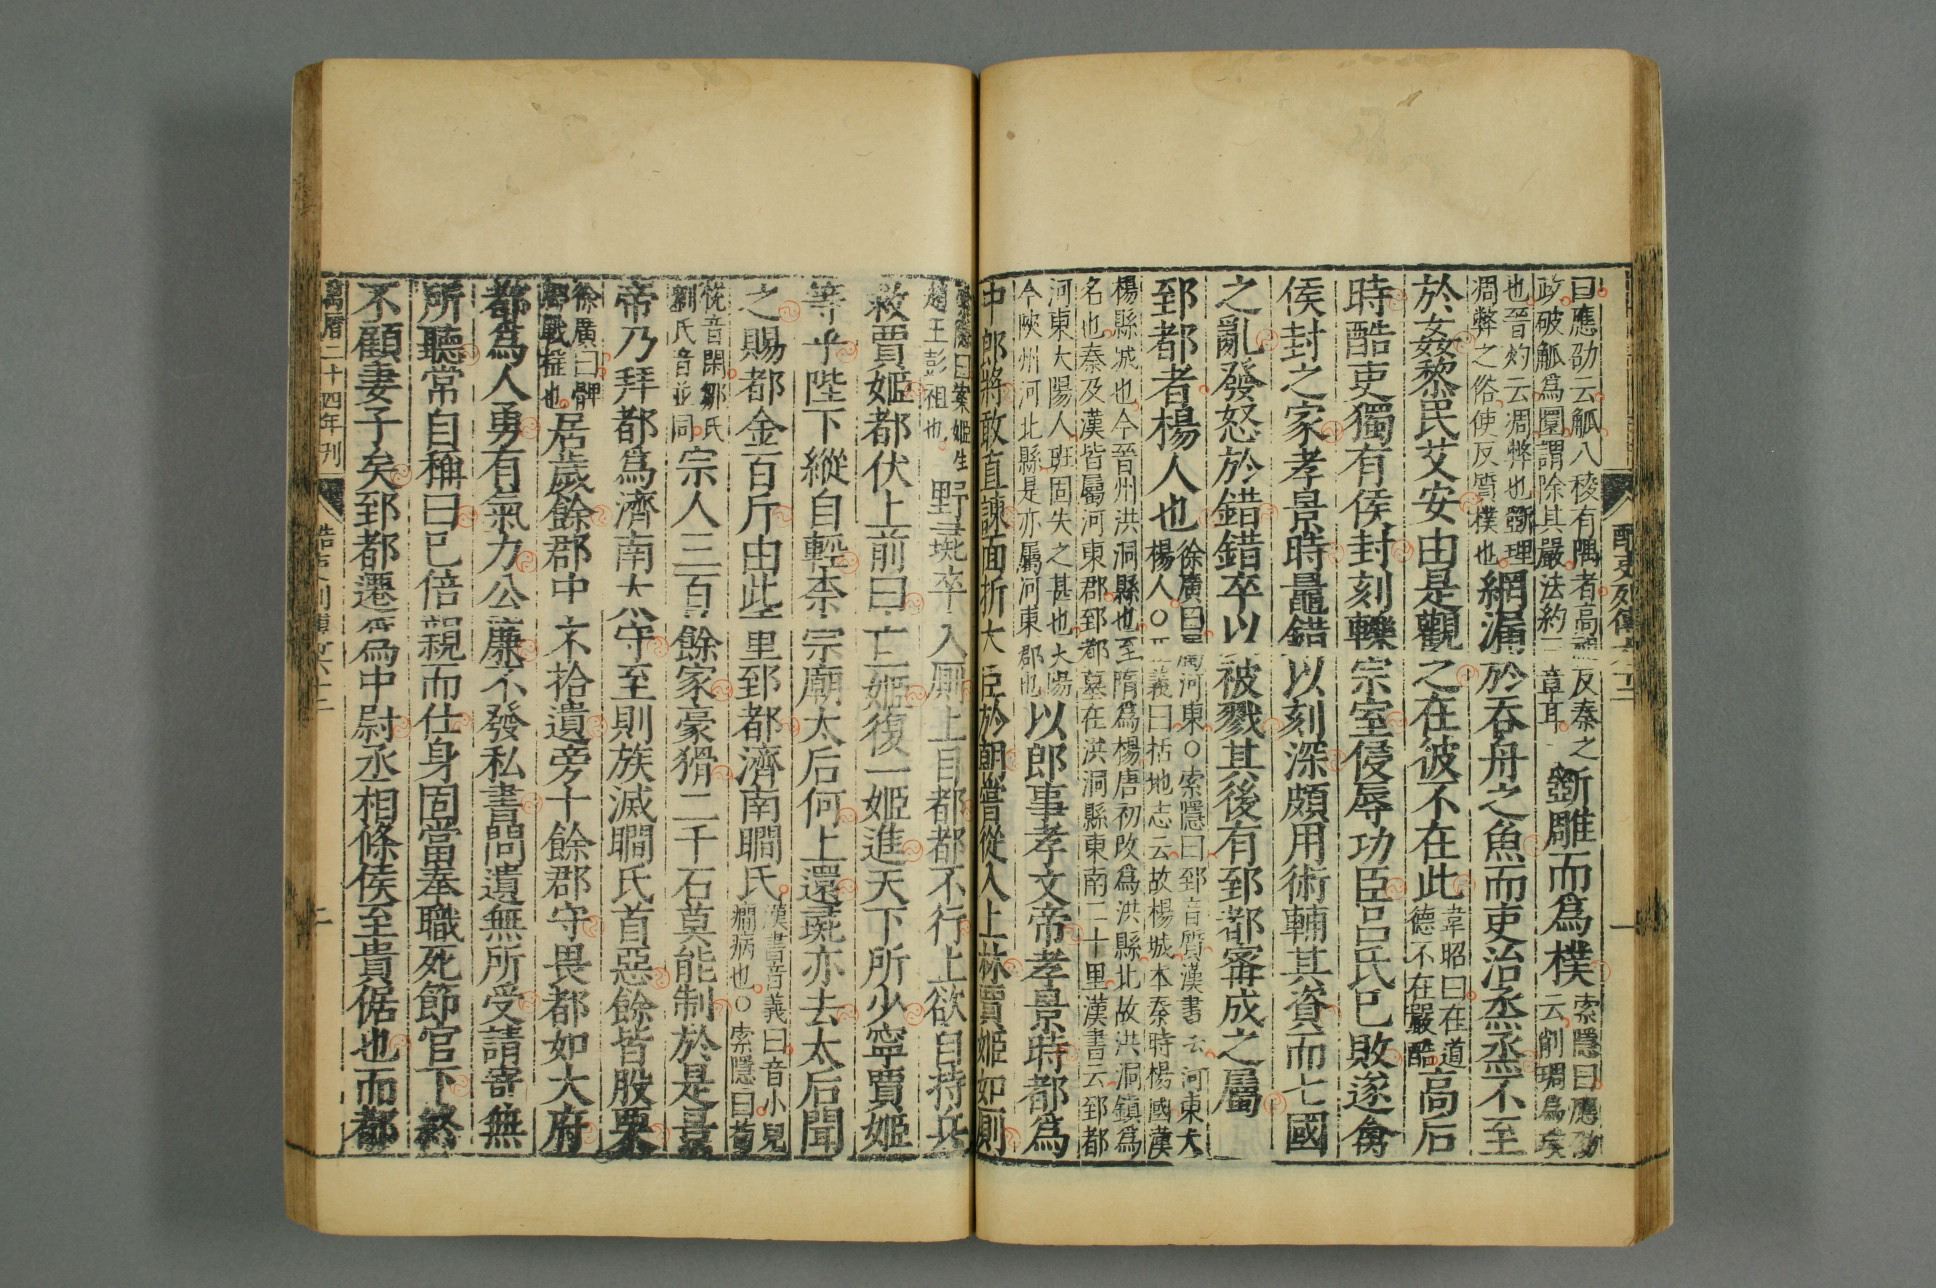 酷吏列傳六十二
一
曰應劭云觚八稜有隅者高祖反秦之
政破觚爲圜謂除其嚴法約三章耳斲雕而爲樸索隱曰應劭
云削琱爲璞
也晉灼云凋弊也斲理
凋弊之俗使反質樸也網漏於吞舟之魚而吏治烝烝不至
於姦黎民艾安由是觀之在彼不在此韋昭曰在道德不在嚴酷高后
時酷吏獨有侯封刻轢宗室侵辱功臣呂氏已敗遂禽
侯封之家孝景時鼂錯以刻深頗用術輔其資而七國
之亂發怒於錯錯卒以被戮其後有郅都寗成之屬
郅都者楊人也徐廣曰屬河東〇索隱曰郅音質漢書云河東大
楊人〇正義曰括地志云故楊城本秦時楊國漢
楊縣城也今晉州洪洞縣也至隋爲楊唐初改爲洪縣北故洪洞鎮爲
名也秦及漢皆屬河東郡郅都墓在洪洞縣東南二十里漢書云郅都
河東大陽人班固失之甚也大陽
今陝州河北縣是亦屬河東郡也以郎事孝文帝孝景時都爲
中郎將敢直諫面折大臣於朝嘗從入上林賈姬如廁
索隱曰案姬生
趙王彭祖也野彘卒入廁上目都都不行上欲自持兵
救賈姬都伏上前曰亡一姬復一姬進天下所少寧賈姬
等乎陛下縱自輕柰宗廟太后何上還彘亦去太后聞
之賜都金百斤由此重郅都濟南瞷氏漢書音義曰音小兒
癇病也〇索隱曰荀
悅音閑鄒氏
劉氏音並同宗人三百餘家豪猾二千石莫能制於是景
帝乃拜都爲濟南太守至則族滅瞷氏首惡餘皆股栗
徐廣曰髀
脚戰搖也居歲餘郡中不拾遺旁十餘郡守畏都如大府
都爲人勇有氣力公廉不發私書問遺無所受請寄無
所聽常自稱曰已倍親而仕身固當奉職死節官下終
不顧妻子矣郅都遷爲中尉丞相條侯至貴倨也而都
萬曆二十四年刊
酷吏列傳六十二
二